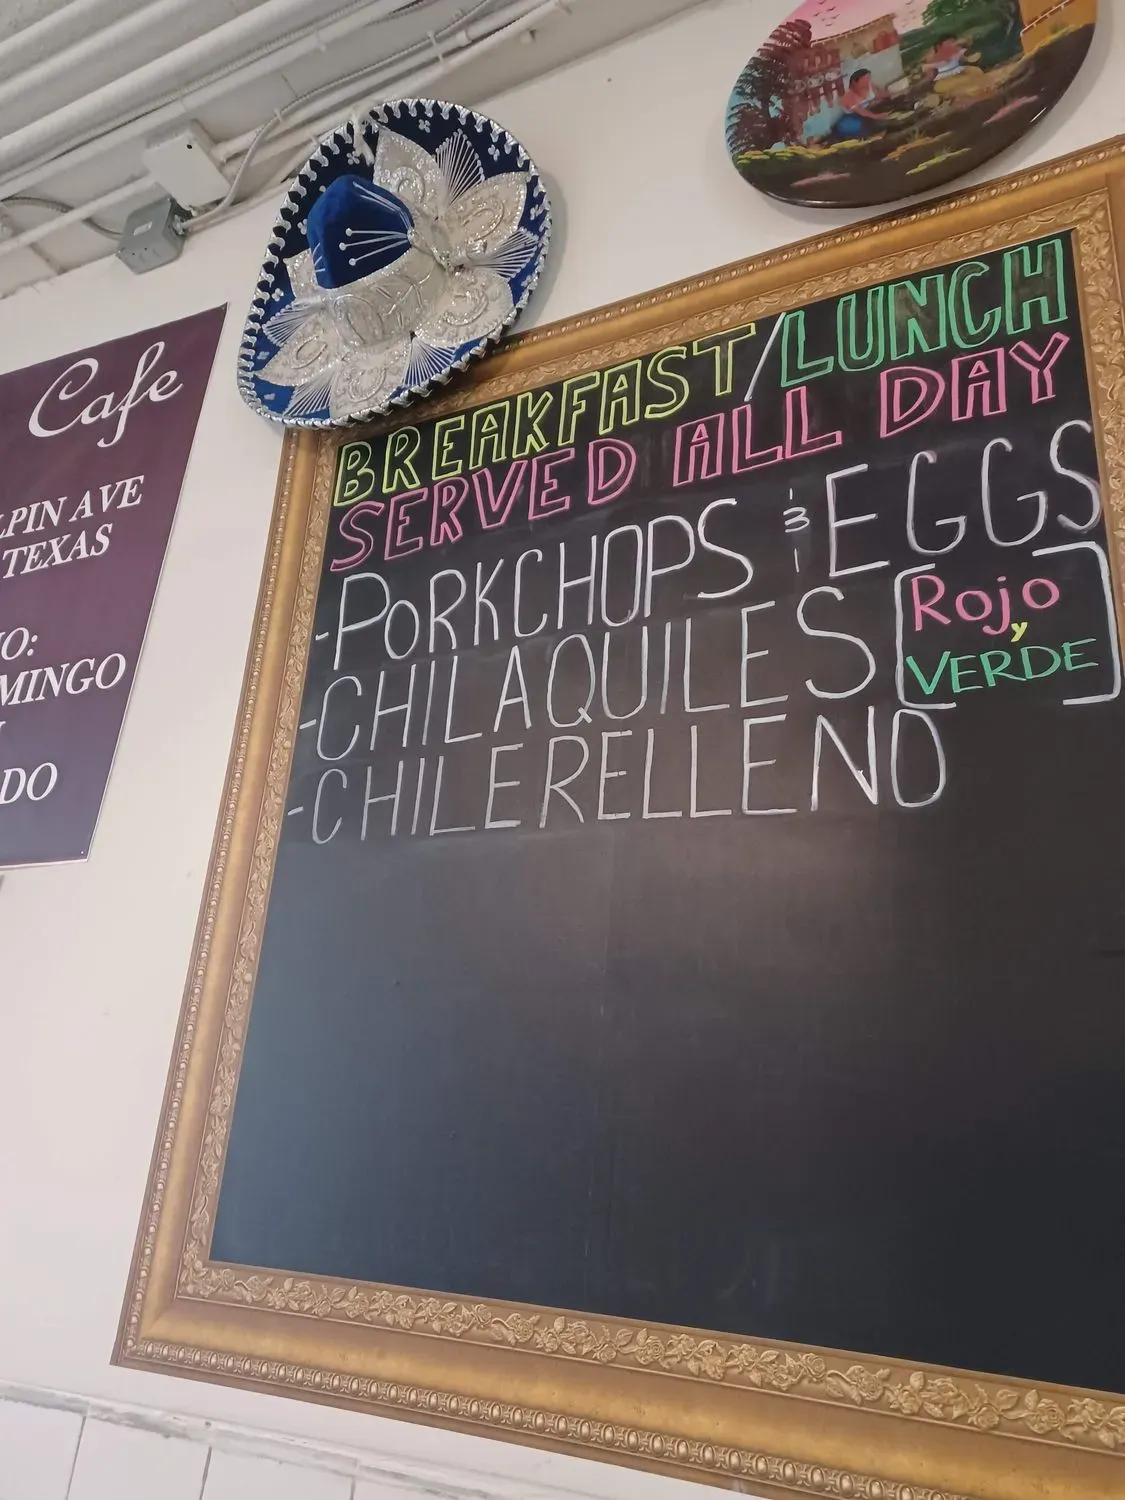 Cafe
AVE
TEXAS
BREAKFAST/LUNCH
SERVED ALL DAY
-PORKCHOPS & EGGS
-CHILAQUILES [Rojo
y
VERDE]
-CHILE RELLENO